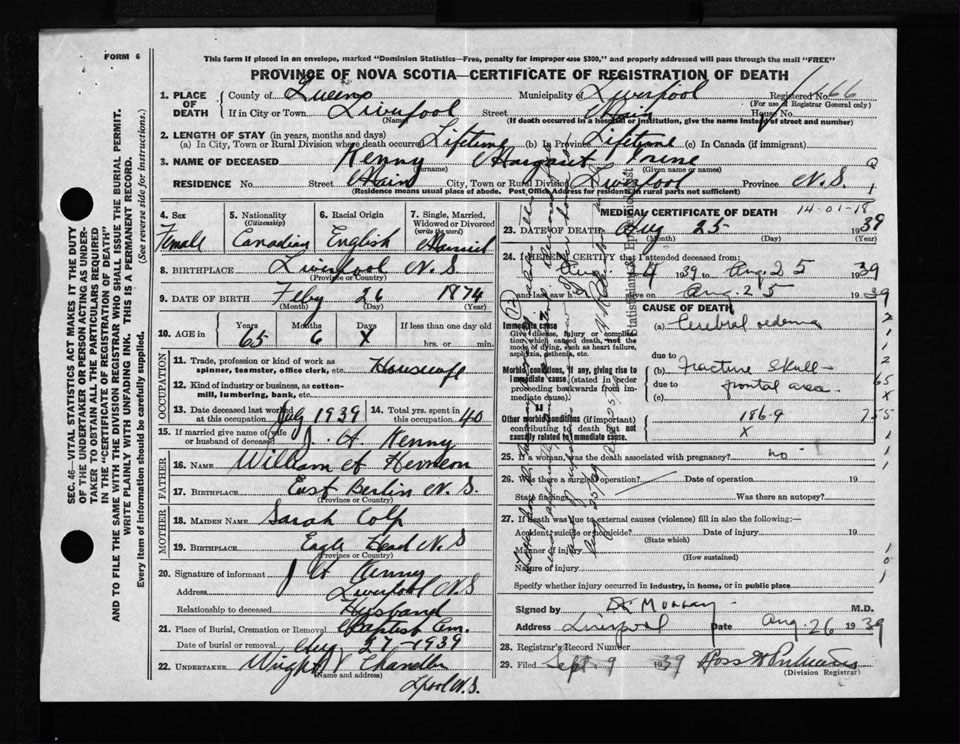 FORM 6
This form if placed in an envelope, marked "Dominion Statistics—Free, penalty for improper use $300," and properly addressed will pass through the mail "FREE"
PROVINCE OF NOVA SCOTIA—CERTIFICATE OF REGISTRATION OF DEATH
SEC. 46—VITAL STATISTICS ACT MAKES IT THE DUTY
OF THE UNDERTAKER OR PERSON ACTING AS UNDER-
TAKER TO OBTAIN ALL THE PARTICULARS REQUIRED
IN THE "CERTIFICATE OF REGISTRATION OF DEATH"
AND TO FILE THE SAME WITH THE DIVISION REGISTRAR WHO SHALL ISSUE THE BURIAL PERMIT.
WRITE PLAINLY WITH UNFADING INK. THIS IS A PERMANENT RECORD.
Every item of information should be carefully supplied. (See reverse side for instructions.)
1. PLACE OF DEATH County of Queens Municipality of Liverpool Registered No. 66
(For use of Registrar General only)
If in City or Town Liverpool Street Main House No.
(Name) (If death occurred in a hospital or institution, give the name instead of street and number)
2. LENGTH OF STAY (in years, months and days)
(a) In City, Town or Rural Division where death occurred Lifetime (b) In Province Lifetime (c) In Canada (if immigrant)
3. NAME OF DECEASED Kenny Margaret
(Surname) (Given name or names)
RESIDENCE No. Street Main City, Town or Rural Division Liverpool Province N.S.
(Residence means usual place of abode. Post Office Address for residents in rural parts not sufficient)
4. Sex Female
5. Nationality (Citizenship) Canadian
6. Racial Origin English
7. Single, Married, Widowed or Divorced (write the word) Married
8. BIRTHPLACE Liverpool N.S.
(Province or Country)
9. DATE OF BIRTH Feby 26 1874
(Month) (Day) (Year)
10. AGE in Years Months Days If less than one day old
65 6 X hrs. or min.
OCCUPATION
11. Trade, profession or kind of work as spinner, teamster, office clerk, etc. Housewife
12. Kind of industry or business, as cotton-mill, lumbering, bank, etc.
13. Date deceased last worked at this occupation 1939 14. Total yrs. spent in this occupation 40
15. If married give name of wife or husband of deceased J. H. Kenny
FATHER
16. NAME William
17. BIRTHPLACE East Berlin N.S.
(Province or Country)
MOTHER
18. MAIDEN NAME Sarah Colp
19. BIRTHPLACE Eagle Head N.S
(Province or Country)
20. Signature of informant J H Kenny
Address Liverpool N.S
Relationship to deceased Husband
21. Place of Burial, Cremation or Removal Baptist Cem.
Date of burial or removal Aug 27-1939
22. UNDERTAKER Wright & Chandler
(Name and address)
Lpool N.S.
MEDICAL CERTIFICATE OF DEATH
14-01-18
23. DATE OF DEATH Aug 25 1939
(Month) (Day) (Year)
24. I HEREBY CERTIFY that I attended deceased from
Aug 24 1939 to Aug. 25 1939
and last saw h alive on Aug. 25 1939
CAUSE OF DEATH
Immediate cause
Give disease, injury or complication which caused death, not the mode of dying, such as heart failure, asphyxia, asthenia, etc.
(a) Cerebral oedema
due to
Morbid conditions, if any, giving rise to immediate cause (stated in order proceeding backwards from immediate cause).
(b) Fracture skull -
due to frontal area -
(c)
Other morbid conditions (if important) contributing to death but not causally related to immediate cause.
186-9
X
25. If a woman, was the death associated with pregnancy? no
26. Was there a surgical operation? Date of operation 19
State findings Was there an autopsy?
27. If death was due to external causes (violence) fill in also the following:—
Accident, suicide or homicide? Date of injury 19
(State which)
Manner of injury
(How sustained)
Nature of injury
Specify whether injury occurred in industry, in home, or in public place
Signed by Dr. Murray M.D.
Address Liverpool Date Aug. 26 1939
28. Registrar's Record Number
29. Filed Sept. 9 1939
(Division Registrar)